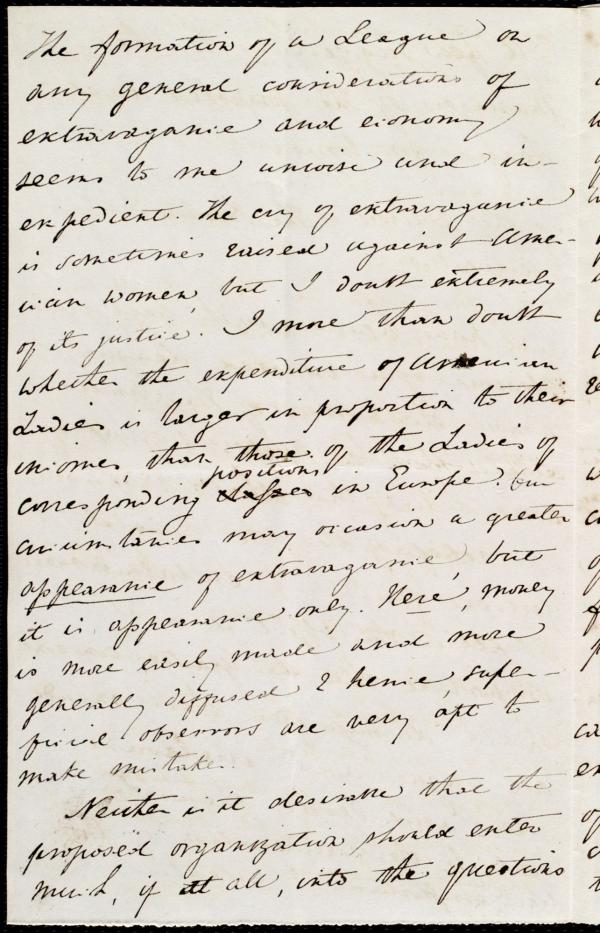 The formation of a League on
any general considerations of
extravagance and economy
seems to me unwise and in-
expedient. The cry of extravagance
is sometimes raised against Amer-
ican women, but I doubt extremely
of its justice. I more than doubt
whether the expenditure of American
Ladies is larger in proportion to their
incomes, than those of the Ladies of
corresponding classes positions in Europe. Our
circumstances may occasion a greater
appearance of extravagance, but
it is appearance only. Here, money
is more easily made and more
generally diffused & hence, super-
ficial observors are very apt to
make mistake.
Neither is it desirable that the
proposed organization should enter
much, if at all, into the questions